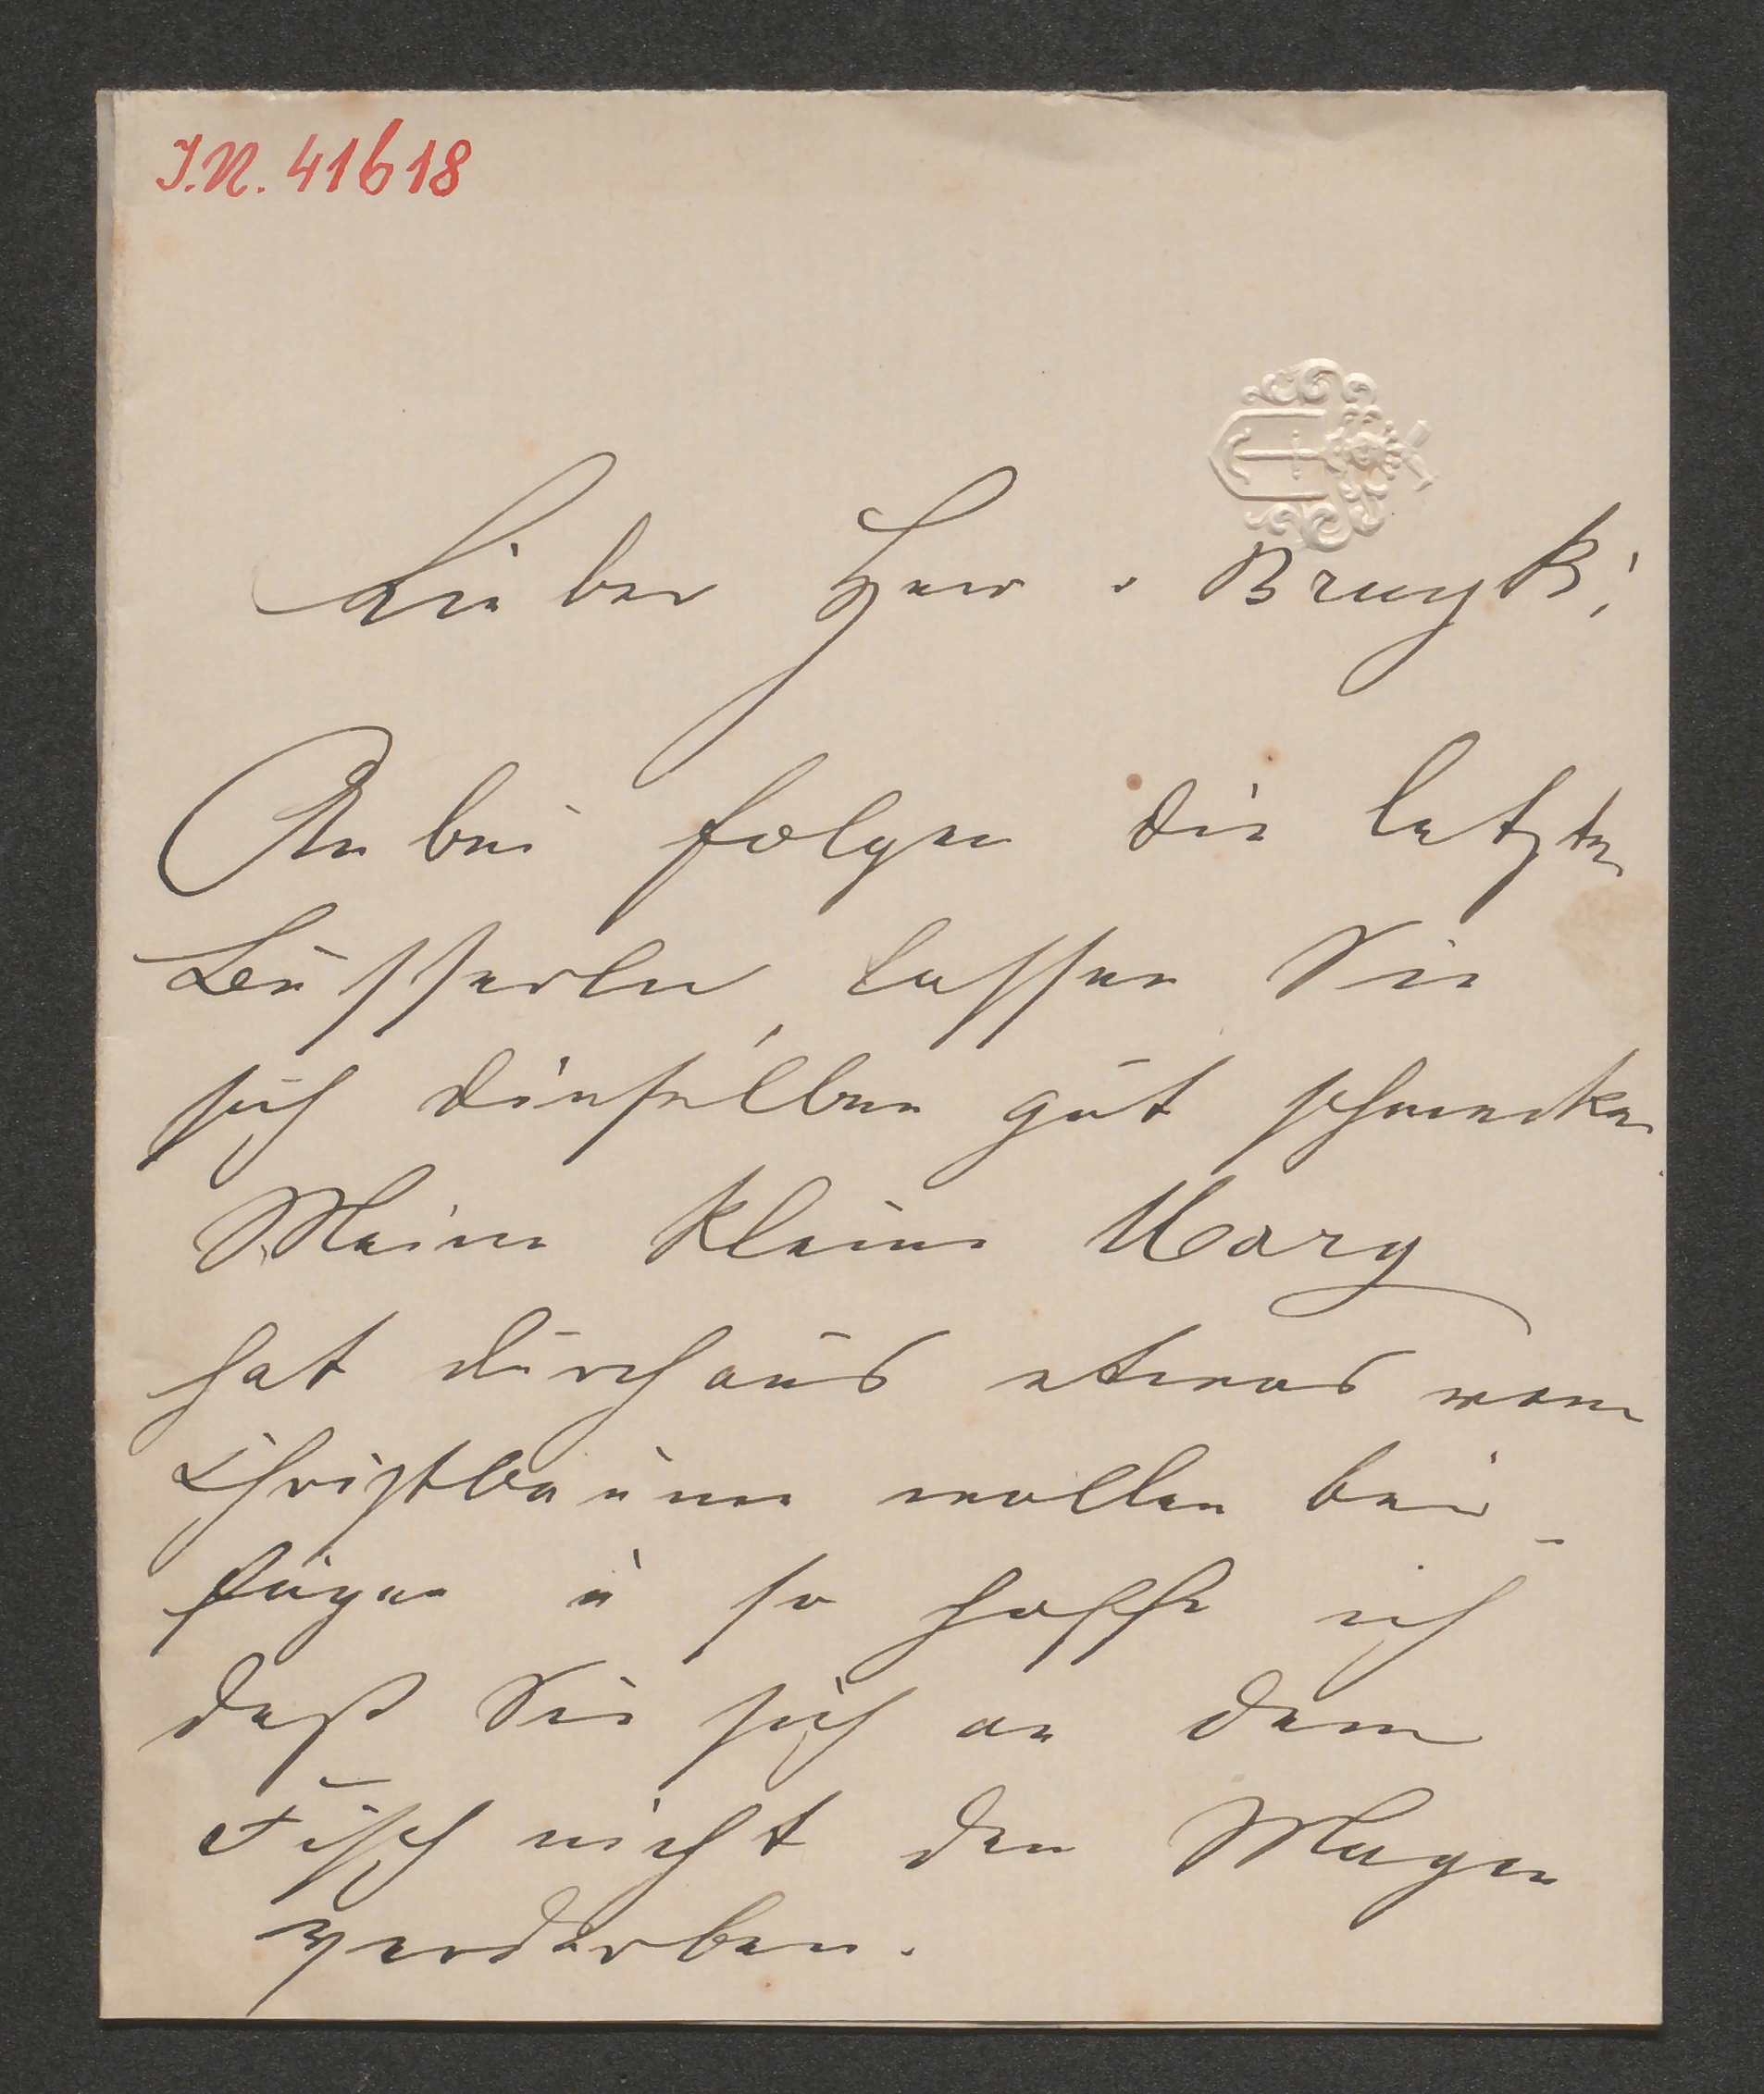 I.N. 41618
Lieber Herr v Bruyk!
Anbei folgen die letzten
Busserln, lassen Sie
sich dieselben gut schmecken
Meine kleine Mary
hat durchaus etwas vom
Christbaum wollen bei-
fügen u so hoffe ich
daß Sie sich an dem
Fisch nicht den Magen
verderben.